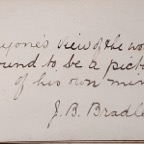 yone's view of the wo
ound to be a pict
of his own min
J. B. Bradle